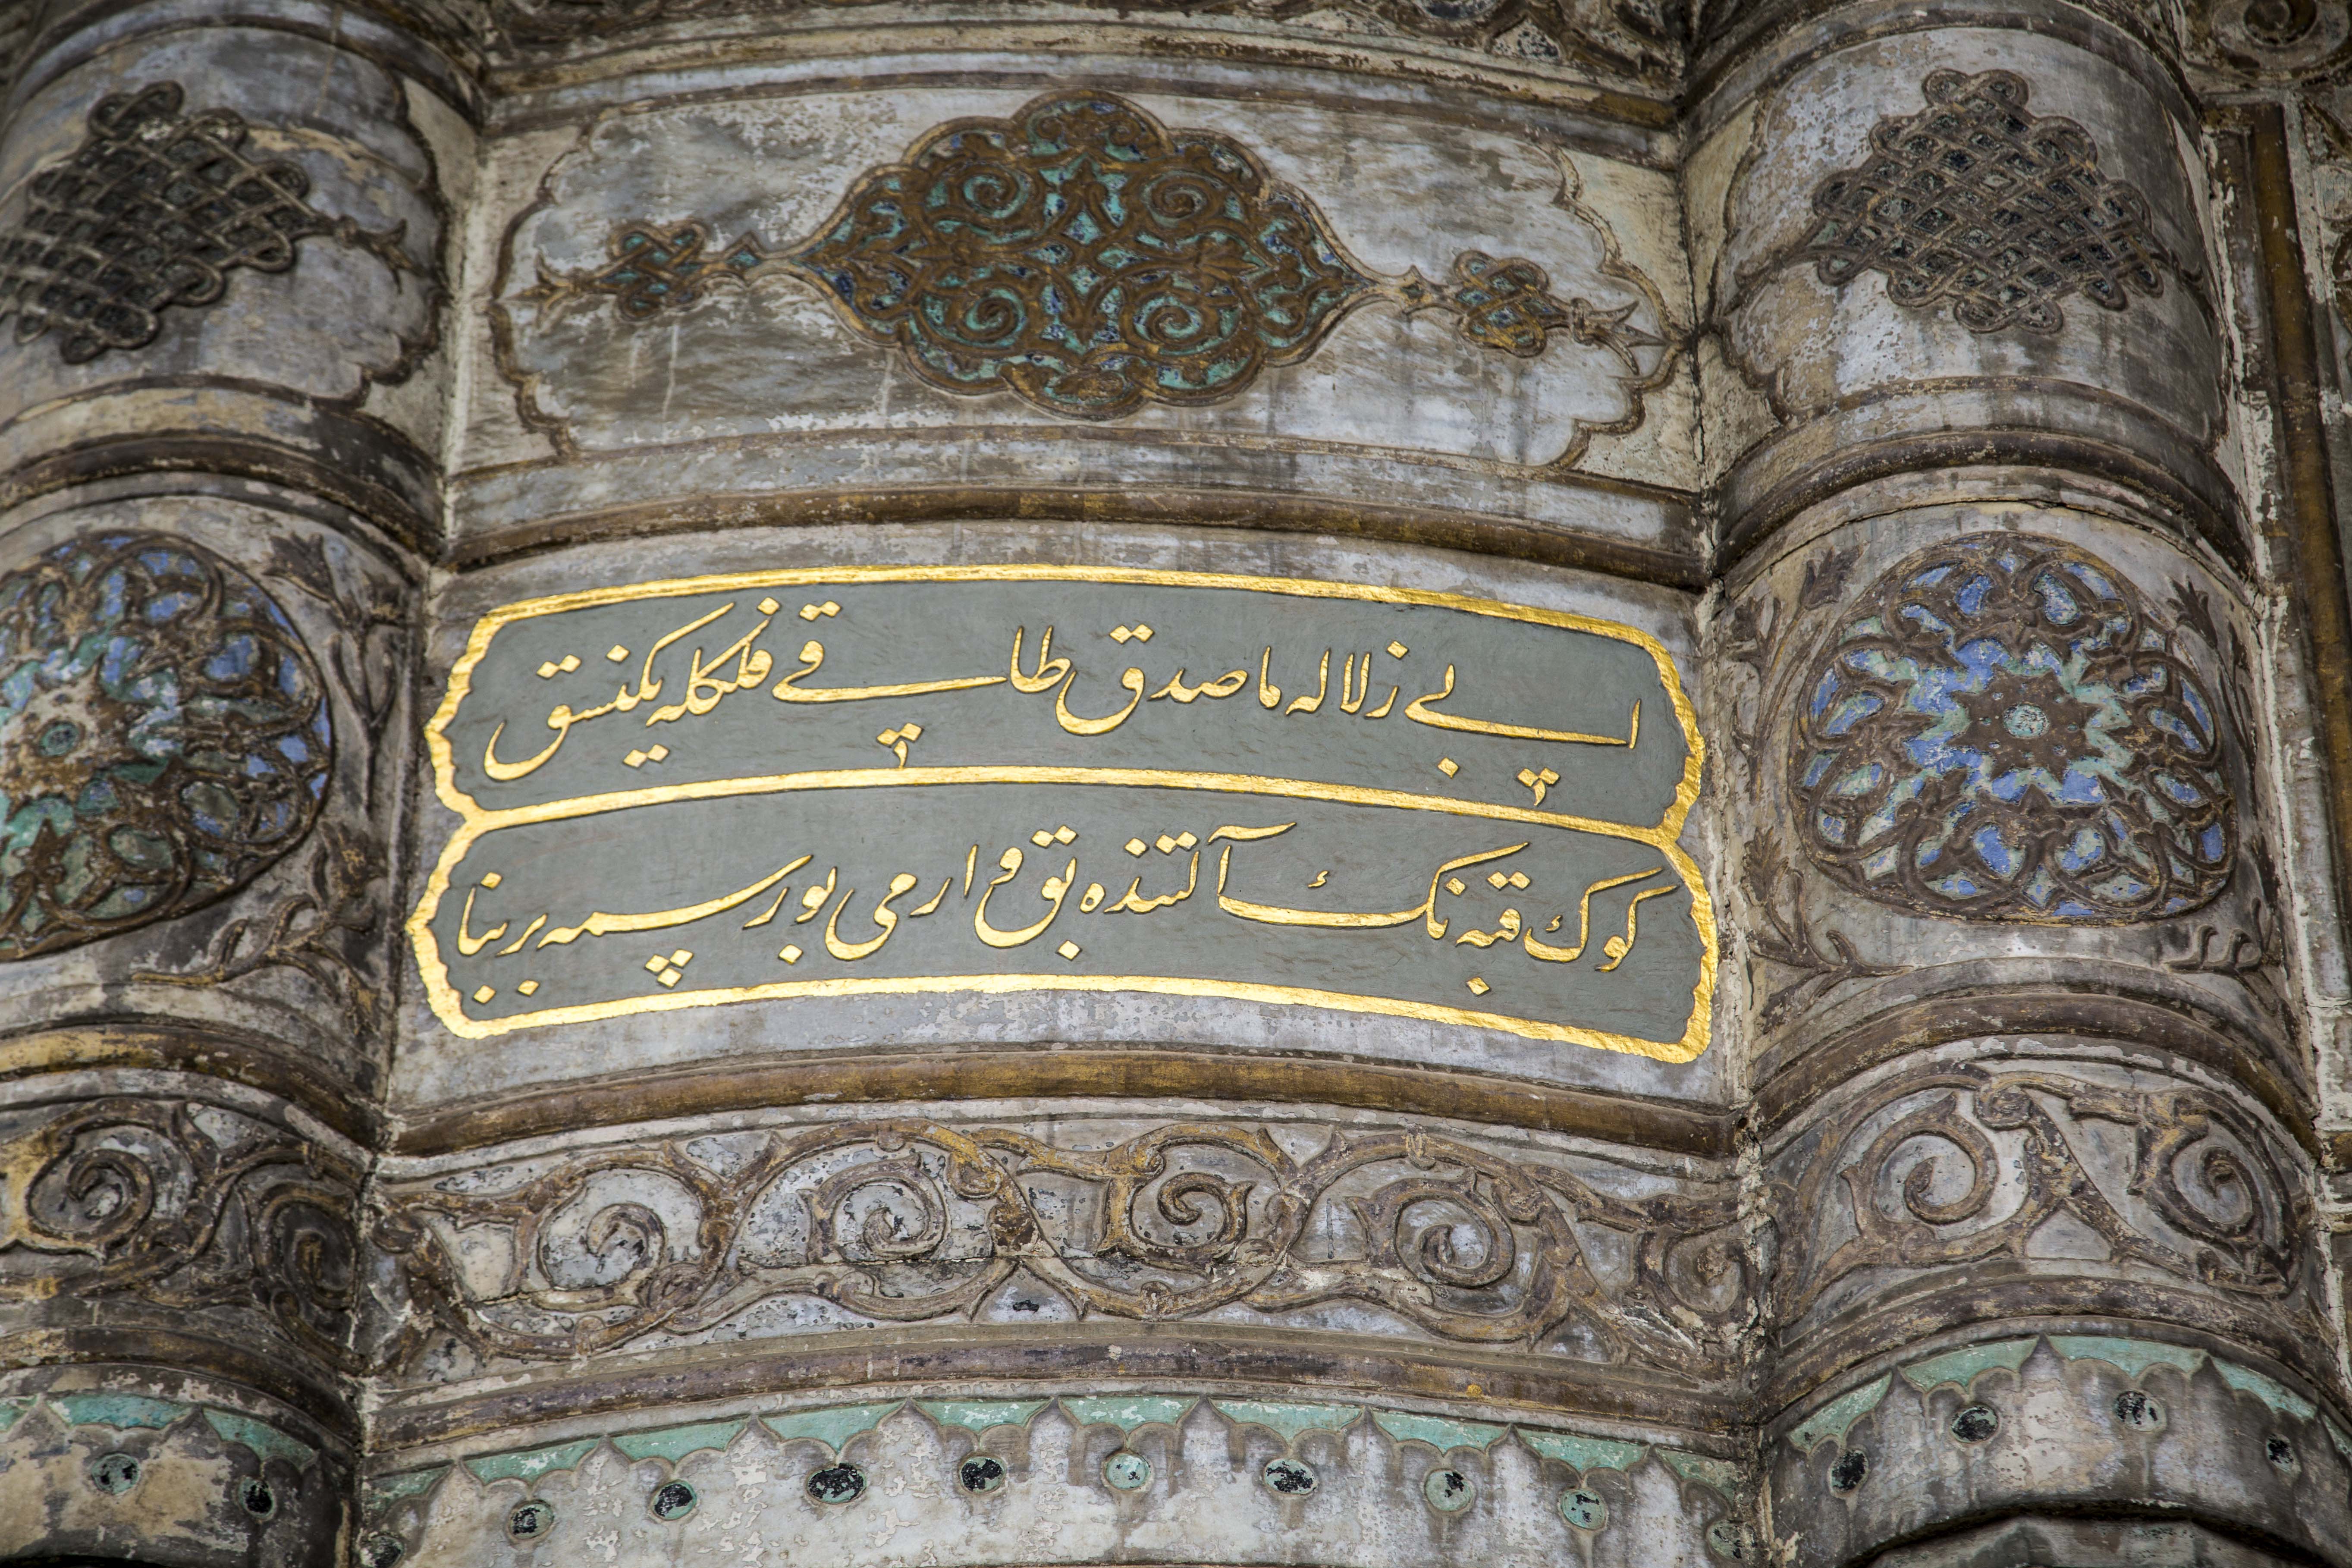 ابی زلاله ماصدق طاقی فلکله یکنسق
کوک قبه نک آلتنده بق وارمی بو رسمه بر بنا